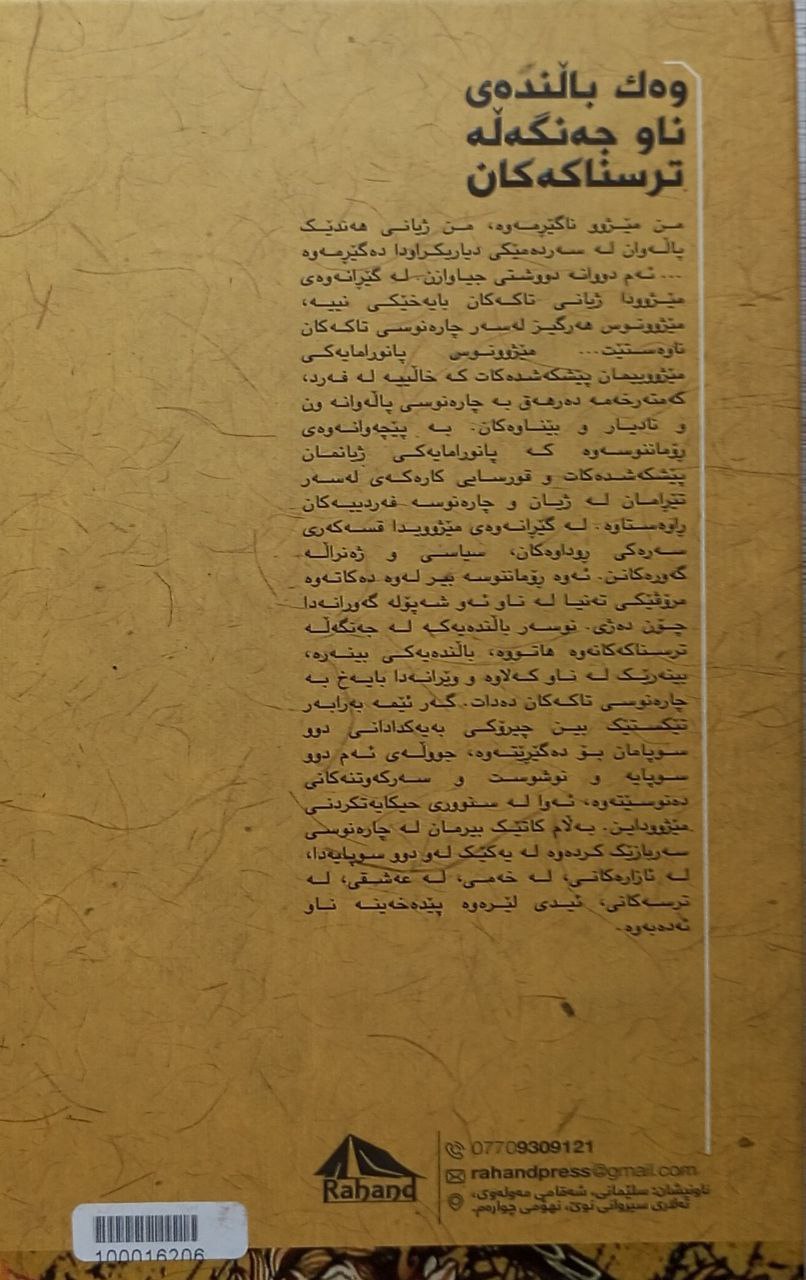 وەك باڵندەی
ناو جەنگەڵە
ترسناکەکان
من مێژوو ناگێڕمەوە، من ژیانی هەندێک
پاڵەوان لە سەردەمێکی دیاریکراودا دەگێڕمەوە
... ئەم دووانە دووشتی جیاوازن. لە گێڕانەوەی
مێژوودا ژیانی تاکەکان بایەخێکی نییە،
مێژوونوس هەرگیز لەسەر چارەنوسی تاکەکان
ناوەستێت... مێژوونوس پانۆرامایەکی
مێژووییمان پێشکەشدەکات کە خاڵییە لە فەرد،
کەمتەرخەمە دەرهەق بە چارەنوسی پاڵەوانە ون
و نادیار و بێناوەکان. بە پێچەوانەوەی
ڕۆماننوسەوە کە پانۆرامایەکی ژیانمان
پێشکەشدەکات و قورسایی کارەکەی لەسەر
تێڕامان لە ژیان و چارەنوسە فەردییەکان
ڕاوەستاوە. لە گێڕانەوەی مێژوویدا قسەکەری
سەرەکی ڕوداوەکان، سیاسی و ژەنراڵە
گەورەکانن. ئەوە ڕۆماننوسە بیر لەوە دەکاتەوە
مرۆڤێکی تەنیا لە ناو ئەو شەپۆلە گەورانەدا
چۆن دەژی. نوسەر باڵندەیەکە لە جەنگەڵە
ترسناکەکانەوە هاتووە، باڵندەیەکی بینەرە،
بینەرێک لە ناو کەلاوە و وێرانەدا بایەخ بە
چارەنوسی تاکەکان دەدات. گەر ئێمە بەرابەر
تێکستێک بین چیرۆکی بەیەکدادانی دوو
سوپامان بۆ دەگێڕێتەوە، جووڵەی ئەم دوو
سوپایە و نوشوست و سەرکەوتنەکانی
دەنوسێتەوە، ئەوا لە سنووری حیکایەتکردنی
مێژووداین. بەڵام کاتێک بیرمان لە چارەنوسی
سەربازێک کردەوە لە یەکێک لەو دوو سوپایەدا،
لە ئازارەکانی، لە خەمی، لە عەشقی، لە
ترسەکانی، ئیدی لێرەوە پێدەخەینە ناو
ئەدەبەوە.
07709309121
rahandpress@gmail.com
ناونیشان: سلێمانی، شەقامی مەولەوی،
تەلاری سیروانی نوێ، نهۆمی چوارەم.
Rahand
100016206